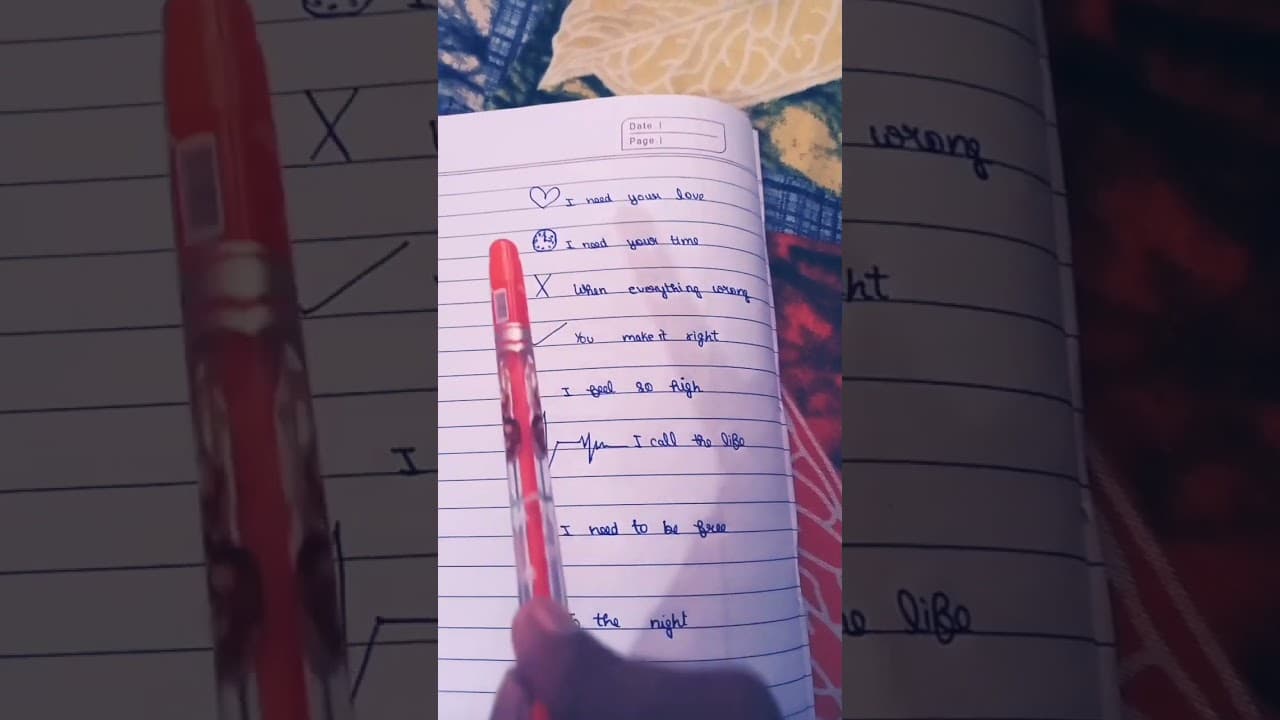 Date
Page
I need your love
I need your time
X When everything wrong
You make it right
I feel so high
I call the life
I need to be free
the night